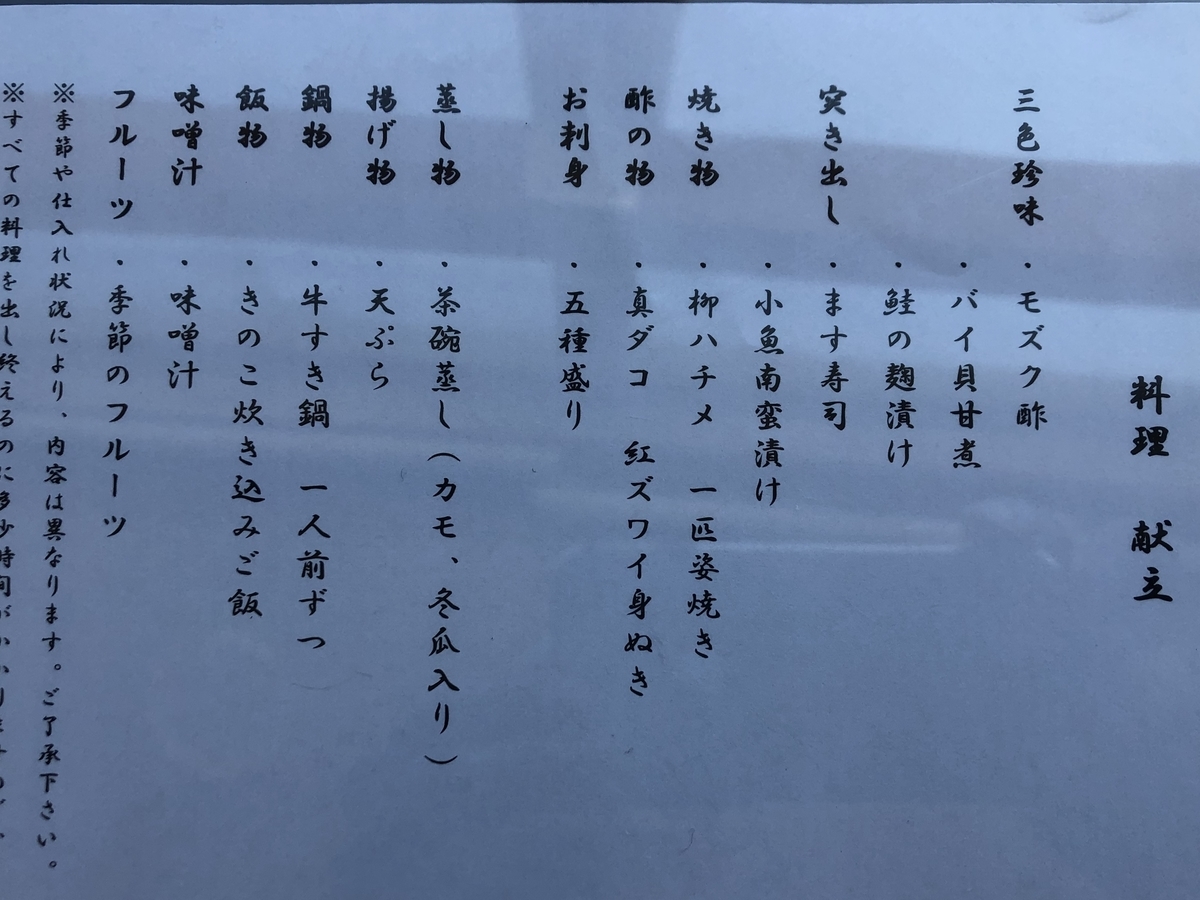 料理 献立
三色珍味 ・モズク酢
・バイ貝甘煮
・鮭の麹漬け
突き出し ・ます寿司
・小魚南蛮漬け
焼き物 ・柳ハチメ 一匹姿焼き
酢の物 ・真ダコ 紅ズワイ身ぬき
お刺身 ・五種盛り
蒸し物 ・茶碗蒸し（カモ、冬瓜入り）
揚げ物 ・天ぷら
鍋物 ・牛すき鍋 一人前ずつ
飯物 ・きのこ炊き込みご飯
味噌汁 ・味噌汁
フルーツ ・季節のフルーツ
※季節や仕入れ状況により、内容は異なります。ご了承下さい。
※すべての料理を出し終えるのに多少時間がかかりますので、